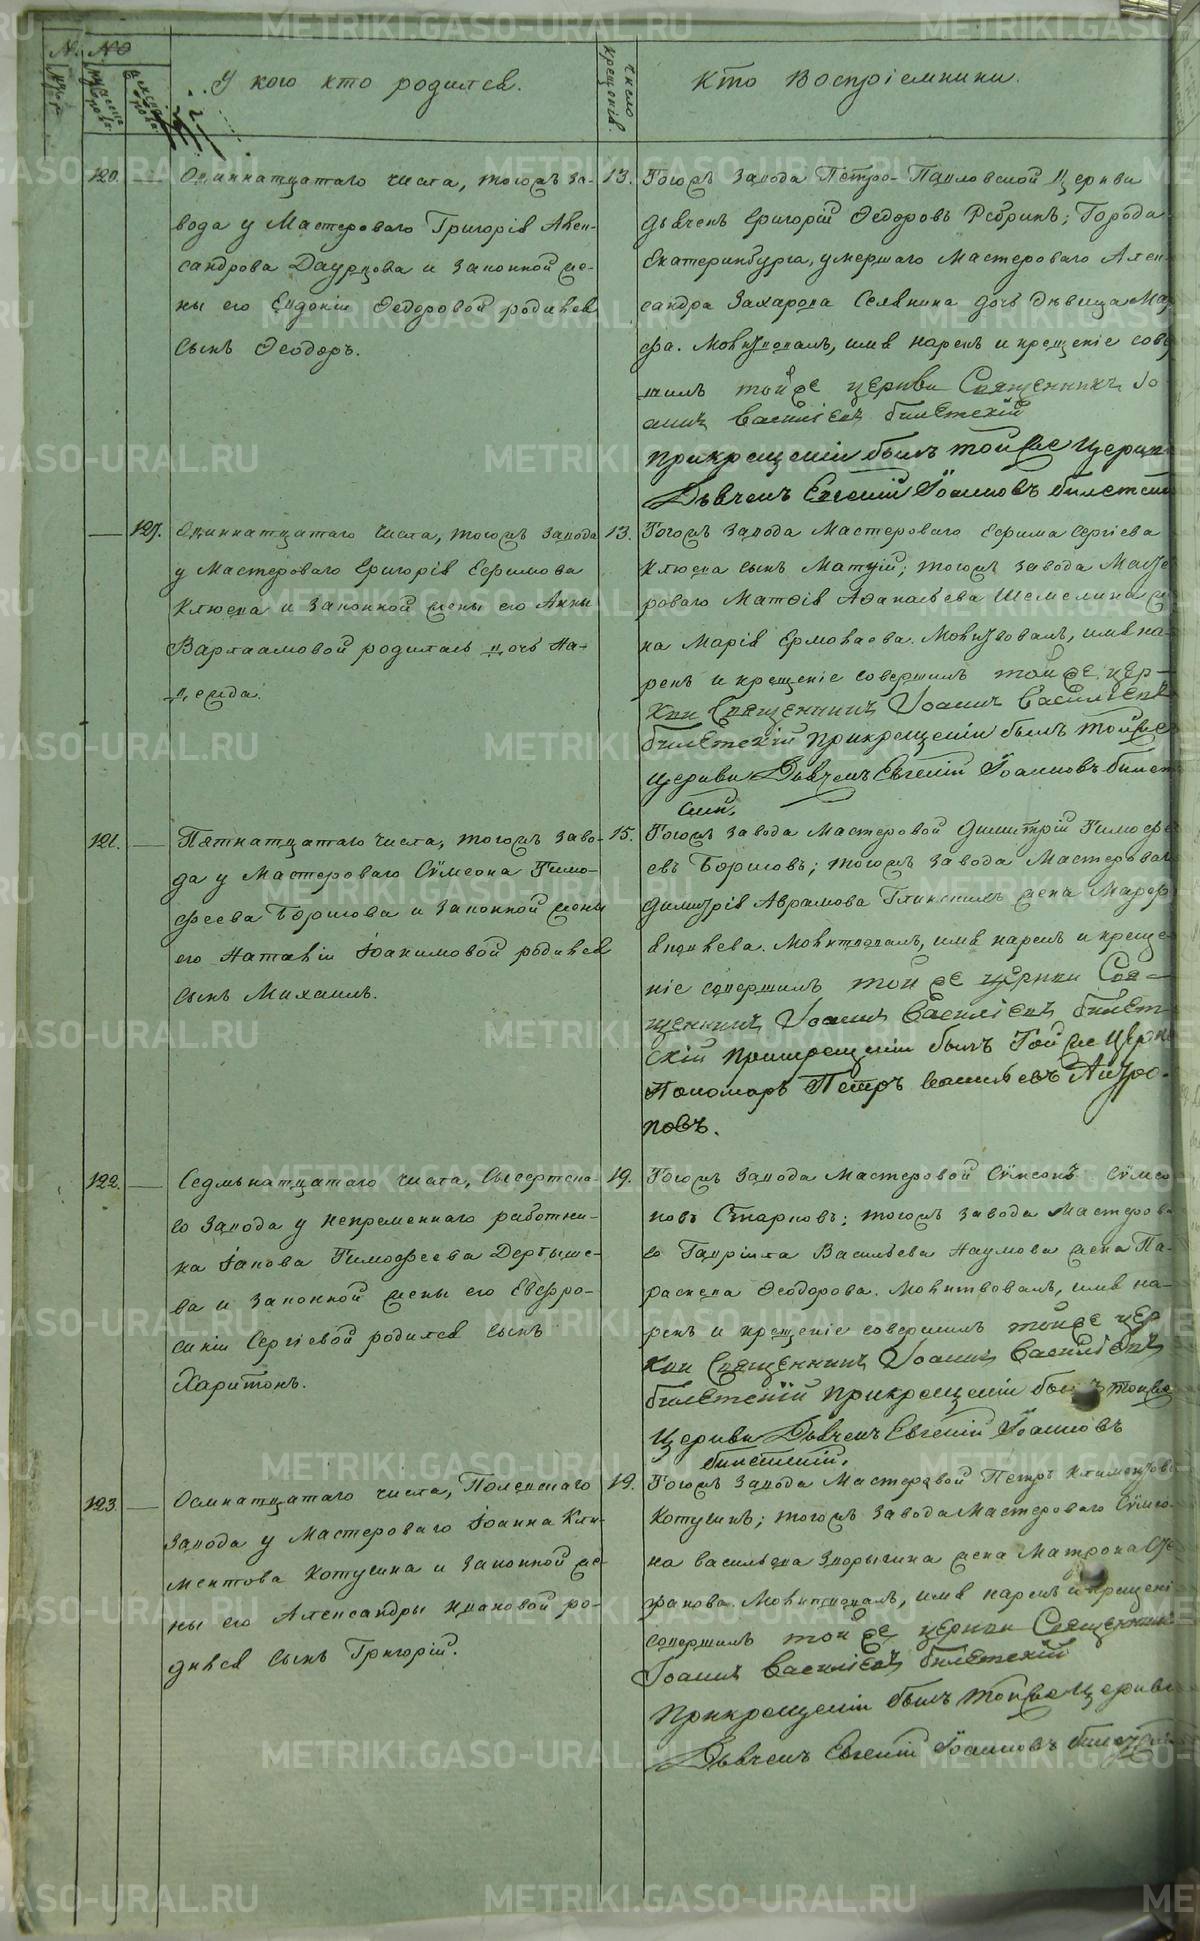 У кого кто родился.
Число крещенія.
Кто Воспріемники.
120.
Одиннатцатаго числа, тогожъ за-
вода у Мастероваго Григорія Алек-
сандрова Даурцова и законной же-
ны его Евдокіи Ѳедоровой родился
сынъ Ѳеодоръ.
13.
Тогожъ завода Петро-Павловской Церкви
дьячекъ Григорій Ѳедоровъ Рѣбринъ; Города
Екатеринбурга, умершаго Мастероваго Алек-
сандра Захарова Селянина дочь дѣвица Мар
ѳа. Молитвовалъ, имя нарекъ и крещеніе совер
шилъ той же церкви Священникъ Іо-
аннъ Васильевъ Билетскій
При крещеніи былъ той же Церкви
Дьячекъ Евгеній Іоанновъ Билетскій
127.
Одиннатцатаго числа, тогожъ завода
у Мастероваго Григорія Ефимова
Клюева и законной жены его Анны
Варлаамовой родилась дочь На-
дежда.
13.
Тогожъ завода Мастероваго Ефима Сергіева
Клюева сынъ Матѳій; тогожъ завода Масте
роваго Матѳія Аѳанасьева Шемелина же
на Марія Ермолаева. Молитвовалъ, имя на-
рекъ и крещеніе совершилъ той же цер-
кви Священникъ Іоаннъ Васильевъ
Билетскій При крещеніи былъ той же
Церкви Дьячекъ Евгеній Іоанновъ Билет
скій.
121.
Пятнатцатаго числа, тогожъ заво-
да у Мастероваго Сѵмеона Тимо-
феева Борисова и законной жены
его Наталіи Іоакимовой родился
сынъ Михаилъ.
15.
Тогожъ завода Мастеровой Димитрій Тимофе
евъ Борисовъ; тогожъ завода Мастероваго
Димитрія Аврамова жена Марѳа
Молитвовалъ, имя нарекъ и креще
ніе совершилъ той же церкви Свя-
щенникъ Іоаннъ Васильевъ Билет
скій При крещеніи былъ Той же Церкви
Пономарь Петръ Васильевъ Антро-
повъ.
122.
Седьмнатцатаго числа, Сысертска-
го завода у непременнаго работни-
ка Іакова Тимофеева Дертыше-
ва и законной жены его Евфро-
синіи Сергіевой родился сынъ
Харитонъ.
19.
Тогожъ завода Мастеровой Сѵмеонъ Сѵмео
новъ Старковъ; тогожъ завода Мастерова
го Гавріила Васильева Наумова жена Па-
раскева Ѳеодорова. Молитвовалъ, имя на-
рекъ и крещеніе совершилъ той же цер
кви Священникъ Іоаннъ Васильевъ
Билетскій При крещеніи былъ той же
Церкви Дьячекъ Евгеній Іоанновъ
Билетскій.
123.
Осмнатцатаго числа, Полевскаго
завода у Мастероваго Іоанна Кли-
ментова Котугина и законной же-
ны его Александры Ивановой ро-
дился сынъ Григорій.
19.
Тогожъ завода Мастеровой Петръ Климентовъ
Котугинъ; тогожъ завода Мастероваго Сѵмео-
на Васильева Зворыгина жена Матрона Сте
фанова. Молитвовалъ, имя нарекъ и крещеніе
совершилъ той же церкви Священникъ
Іоаннъ Васильевъ Билетскій
При крещеніи былъ той же Церкви
Дьячекъ Евгеній Іоанновъ Билетскій
METRIKI.GASO-URAL.RU